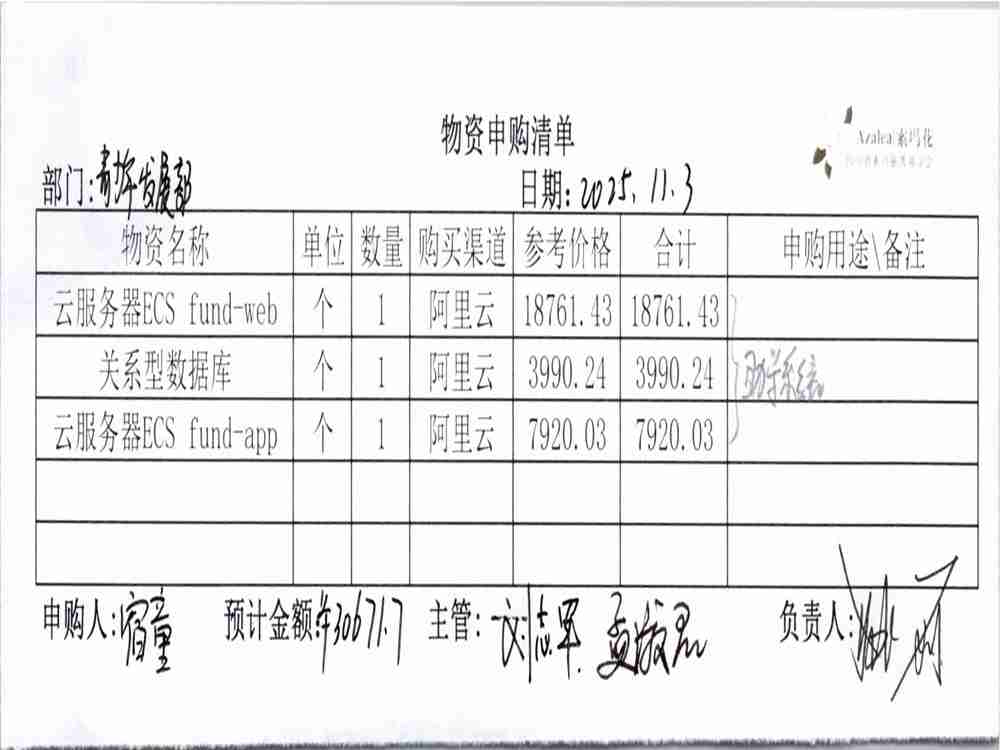 Azalea 索玛花
物资申购清单
部门: 青年发展部 日期: 2025.11.3
物资名称 单位 数量 购买渠道 参考价格 合计 申购用途\备注
云服务器ECS fund-web 个 1 阿里云 18761.43 18761.43
关系型数据库 个 1 阿里云 3990.24 3990.24 助学系统
云服务器ECS fund-app 个 1 阿里云 7920.03 7920.03
申购人: 预计金额: ¥30671.7 主管: 刘志军 负责人: